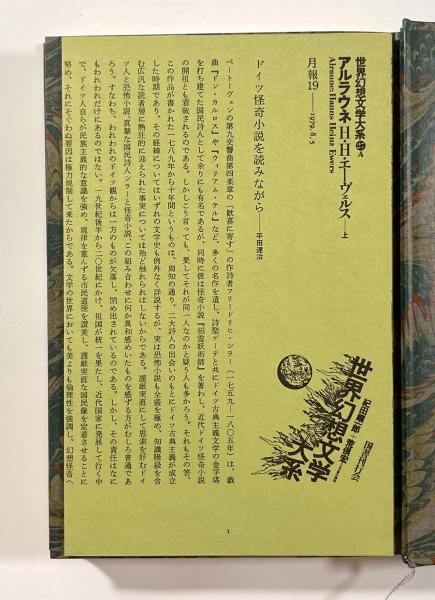 世界幻想文学大系 27 A
アルラウネ H・H・エーヴェルス── 上
Alraune: Hanns Heinz Ewers
月報19──1979.8.5
ドイツ怪奇小説を読みながら──平田達治
ベートーヴェンの第九交響曲第四楽章の「歓喜に寄す」の作詩者フリードリヒ・シラー（一七五九―一八〇五年）は、戯
曲『ドン・カルロス』や『ウィリアム・テル』など、多くの名作を遺し、詩聖ゲーテと共にドイツ古典主義文学の金字塔
を打ち建てた国民詩人として余りにも有名であるが、同時に彼は怪奇小説『招霊妖術師』を著わし、近代ドイツ怪奇小説
の開祖とも看做されるのである。しかしこう言っても、果してそれが同一人なのかと疑う人も多かろう。それもその筈、
この作品が書かれた一七八九年から十年間というものは、周知の通り、二大詩人の出会いのもとにドイツ古典主義が成立
した時期であり、その経緯についてはいずれの文学史も例外なく詳説するが、実は恐怖小説も全盛を極め、知識階級を含
む広汎な読者層に熱狂的に迎えられた事実については殆ど触れられはしないからである。謹厳実直にして思索を好むドイ
ツ人と恐怖小説、真摯な国民詩人シラーと怪奇小説、この組み合わせに何か異和感めいたものを感ずる方がむしろ普通であ
ろう。すなわち、われわれのドイツ観からは一方のものが欠落し、閉め出されているのである。しかし、その責任はなに
もわれわれだけにあるのではない。一九世紀後半から二〇世紀にかけ、祖国が統一を果たし、近代国家に発展して行く中
で、ドイツ人自らが民族主義的な意識を強め、規律を重んずる市民道徳を讃美し、謹厳実直な国民像を定着させることに
努め、それにそぐわぬ要因は極力規制して来たからである。文学の世界においても美よりも倫理性を強調し、幻想怪奇へ
世界幻想文学大系
紀田順一郎 荒俣宏
国書刊行会
1